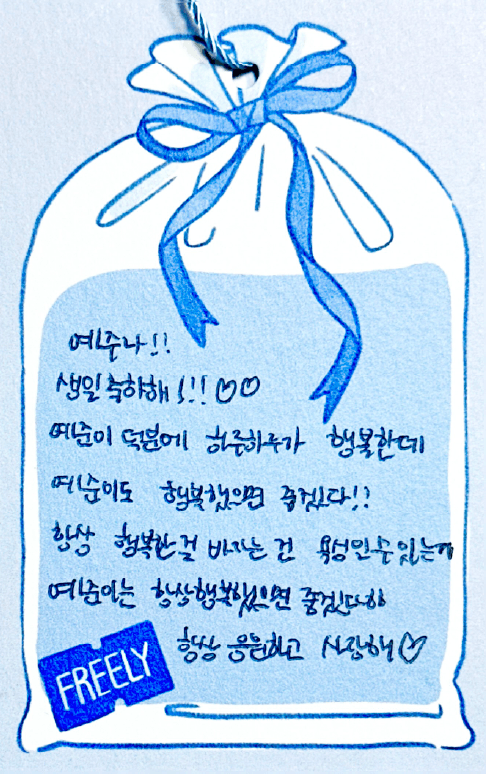 예준아!!
생일 축하해!!!♡♡
예준이 덕분에 하루하루가 행복한데
예준이도 행복했으면 좋겠다!!
항상 행복한걸 바라는 건 욕심일수 있는데
예준이는 항상행복했으면 좋겠다하
항상 응원하고 사랑해♡
FREELY